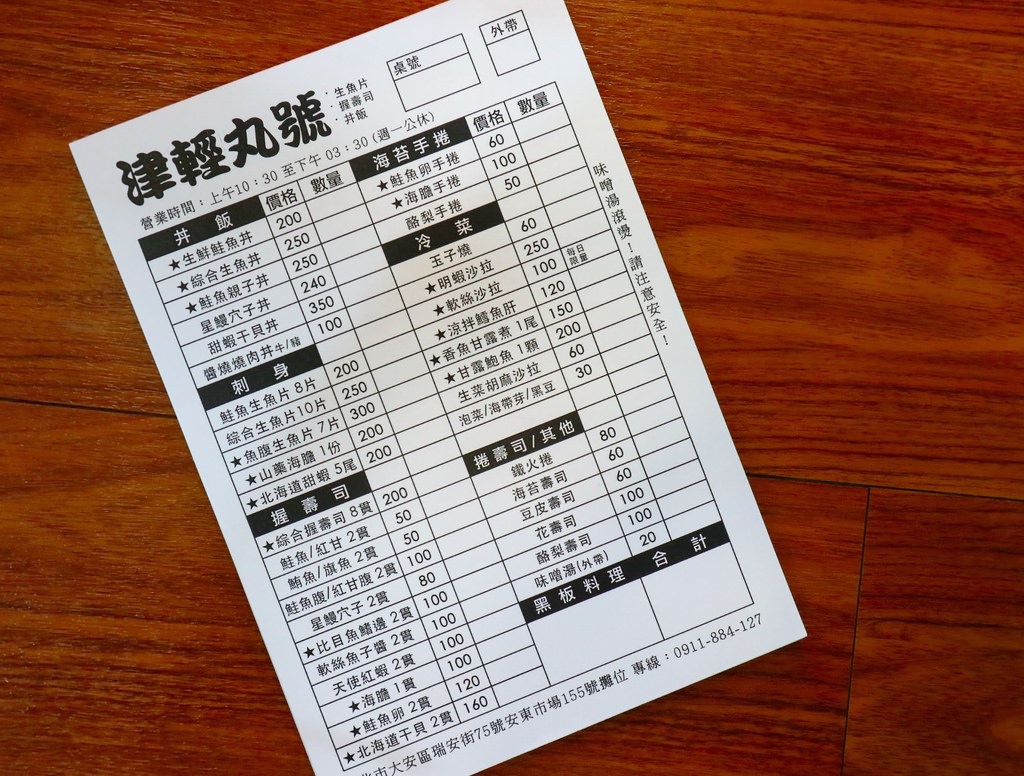 津輕丸號
·生魚片
·握壽司
·丼飯
桌號
外帶
營業時間：上午10：30 至下午 03：30 (週一公休)
丼 飯 價格 數量
★生鮮鮭魚丼 200
★綜合生魚丼 250
★鮭魚親子丼 250
星鰻穴子丼 240
甜蝦干貝丼 350
醬燒燒肉丼牛/豬 100
刺 身
鮭魚生魚片 8片 200
綜合生魚片10片 250
★魚腹生魚片 7片 300
★山藥海膽 1份 200
★北海道甜蝦 5尾 200
握 壽 司
★綜合握壽司 8貫 200
鮭魚/紅甘 2貫 50
鮪魚/旗魚 2貫 50
鮭魚腹/紅甘腹 2貫 100
星鰻穴子 2貫 80
★比目魚鰭邊 2貫 100
軟絲魚子醬 2貫 100
天使紅蝦 2貫 100
★海膽 1貫 100
★鮭魚卵 2貫 120
★北海道干貝 2貫 160
海苔手捲 價格 數量
★鮭魚卵手捲 60
★海膽手捲 100
酪梨手捲 50
冷 菜
玉子燒 60
★明蝦沙拉 250 每日限量
★軟絲沙拉 100
★涼拌鱈魚肝 120
★香魚甘露煮 1尾 150
★甘露鮑魚 1顆 200
生菜胡麻沙拉 60
泡菜/海帶芽/黑豆 30
捲壽司/其他
鐵火捲 80
海苔壽司 60
豆皮壽司 60
花壽司 100
酪梨壽司 100
味噌湯(外帶) 20
黑板料理 合 計
味噌湯滾燙！請注意安全！
北市大安區瑞安街75號安東市場155號攤位 專線：0911-884-127